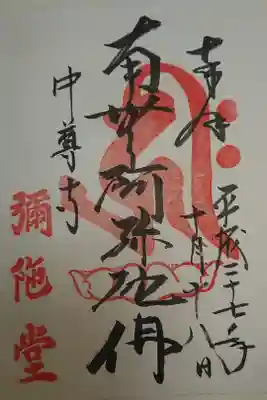 奉拝
平成二十七年
十月十八日
南無阿弥陀佛
中尊寺
彌陀堂